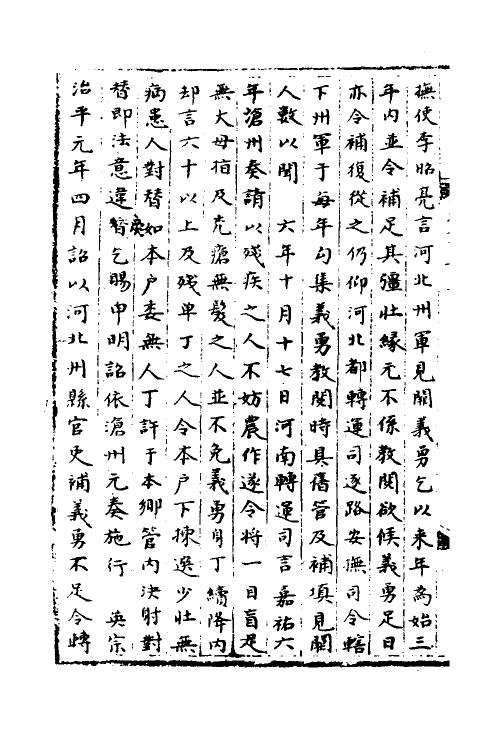 撫使李昭亮言河北州軍見闕義勇乞以来年為始三
年內並令補足其彊壯緣元不係教閱欲候義勇足日
亦令補復從之仍仰河北都轉運司逐路安撫司令轄
下州軍于每年勾集義勇教閱時具舊管及補填見闕
人數以聞 六年十月十七日河南轉運司言嘉祐六
年滄州奏請以殘疾之人不妨農作遂令將一目盲足
無大母指及禿瘡無髮之人並不免義勇身丁續降內
却言六十以上及殘単丁之人令本戶下揀選少壯無
病患人對替如本戶委無人丁許于本鄉管內決射對
替即法意違替乞賜申明詔依滄州元奏施行 英宗
治平元年四月詔以河北州縣官吏補義勇不足令轉